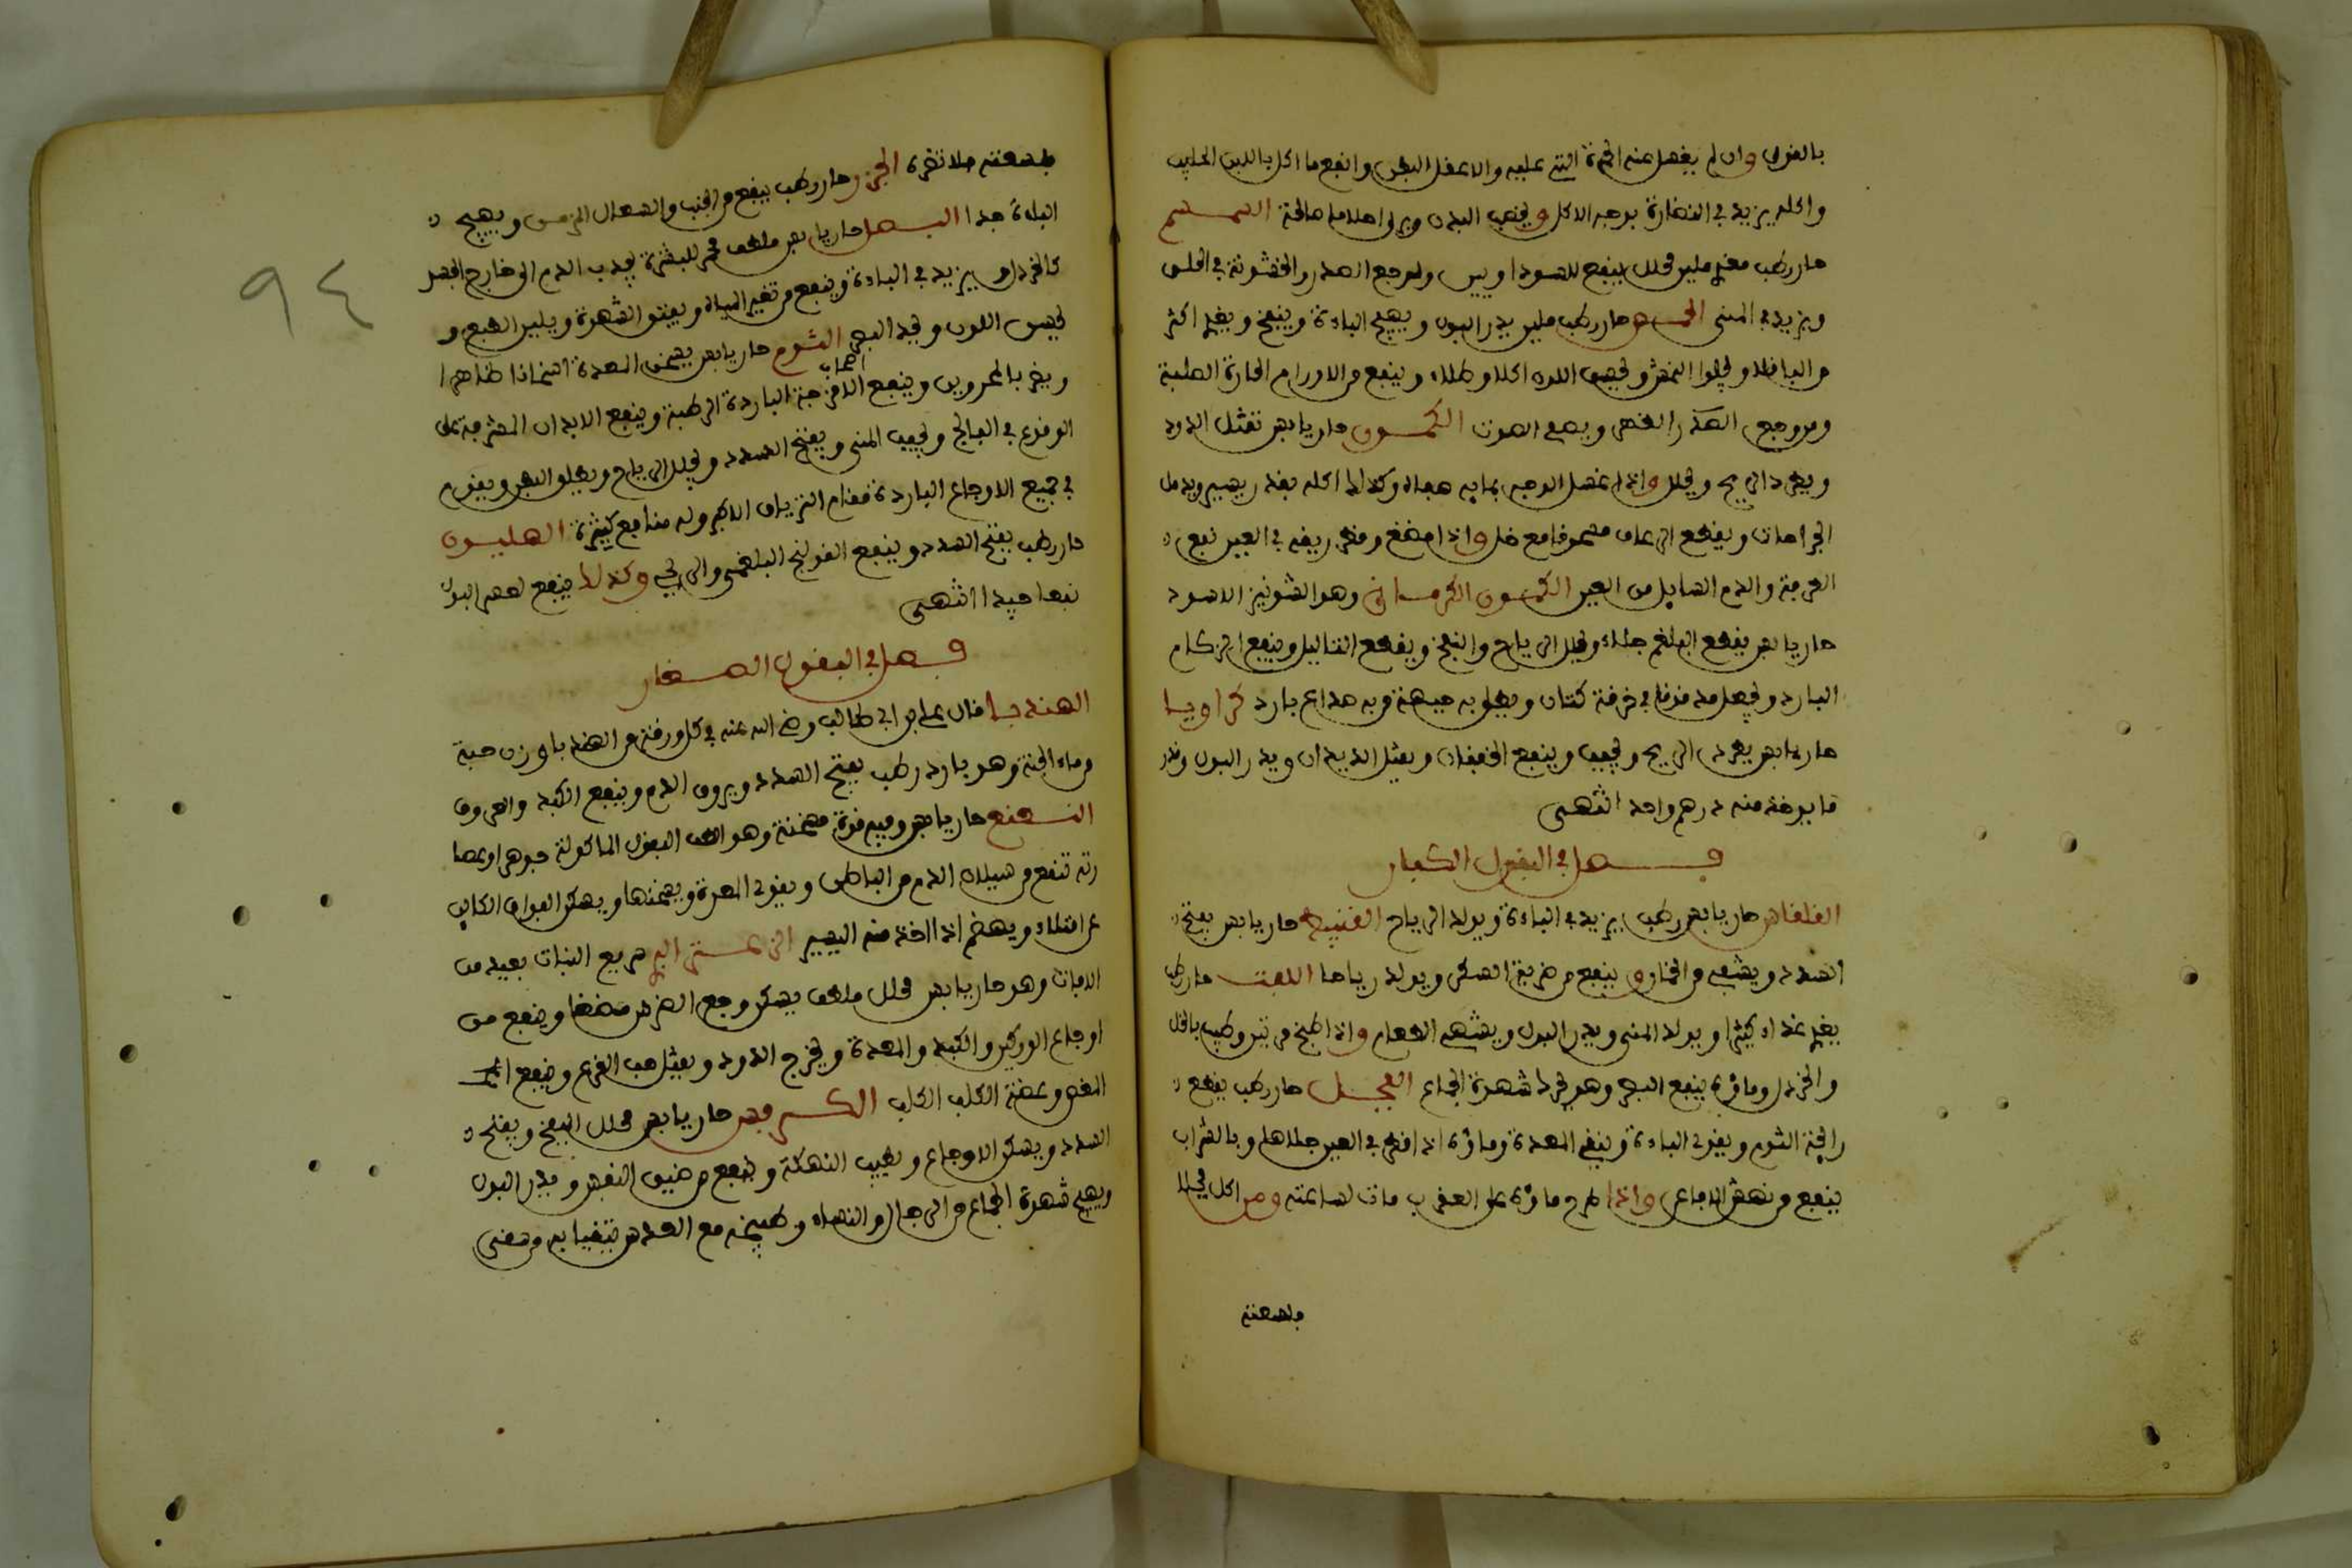 بالغولي وان لم يغسل عنه الحمرة اقته عليه والا عفل البطن وانفع ما اكل باللبن الحليب
واكله يزيد في النضارة بوجه الاكل ويخصب البدن ويولد اخلاطا صالحة السمسم
حار رطب مغير ملين محلل ينفع للسودا ويبس ولوجع الصدر والخشونة في الحلق
ويزيد في المنى الحمص حار رطب ملين يدر البول ويهيج الباءة وينفخ ويغير اكثر
من الباقلا ويجلوا النمش ويحسن اللون اكلا وطلاء وينفع من الاورام الحارة الصلبة
ومن وجع الصدر الظهر ويصفي الصوت الكمون حار يابس تقتل الدود
ويطرد الريح ويحلل واذا غسل الوجه بمايه صفاه وكذلك اكله بقدر يسير ويدمل
الجراحات ويقطع الرعاف مسحوقا مع خل واذا مضغ وقطر ريقه في العين نفع
الطرفة والدم السايل من العين الكمون الكرماني وهو الشونيز الاسود
حار يابس يقطع البلغم جلاء ويحلل الرياح والنفخ ويقطع الثثاليل وينفع الزكام
البارد ويجعل مدقوقا في خرقة كتان ويطلى به جبهة من به صداع بارد كراويا
حار يابس يطرد الريح ويجفف وينفع الخفقان ويقتل الديدان ويدر البول وقدر
ما يوخذ منه درهم واحد انتهى
فصل في البقول الكبار
القلقاس حار يابس رطب يزيد في الباءة ويولد الرياح القنبيط حار يابس يفتح
السدد ويشفي من الخمار وينفع من ضربة السكر ويولد رياحا اللفت حار رطب
يغير غذاه كثيرا ويولد المنى ويدر البول ويشهى الطعام واذا طبخ مرتين وطيب بالخل
والخردل وماؤه ينفع البصر وهو يحرك شهوة الجماع الفجل حار رطب يقطع
رايحة الثوم ويقوى الباءة وينقى المعدة وماؤه اذا قطر في العين جلاها وبالشراب
ينفع من نهش الافاعي واذا طرح ماؤه على العقرب مات لساعته ومن اكل فجلا
ولسعته
٩٤
ولسعته فلا تضره الجزر حار رطب ينفع من الجنب والسعال المزمن ويهيج
الباءة جدا البصل حار يابس ملطف محمر للبشرة يجذب الدم الى خارج الجسد
كالخردل ويزيد في الباءة وينفع من تغير المياه ويفتق الشهوة ويلين الطبع و
يحسن اللون ويحد البصر الثوم حار يابس يسخن المعدة اسخانا ظاهرا
ويضر بالمحرورين وينفع اصحاب الامزجة الباردة الرطبة وينفع الابدان المشرفة على
الوقوع في الفالج ويجفف المنى ويفتح السدد ويحلل الرياح ويطلق البطن ويقوم
في جميع الاوجاع الباردة مقام الترياق الاكبر وله منافع كثيرة الهليون
حار رطب يفتح السدد وينفع القولنج البلغمي والريحي وكذلك ينفع لعسر البول
نفعا جيدا انتهى
فصل في البقول الصغار
الهندبا قال علي بن ابي طالب رضي الله عنه في كل ورقة من الهندبا وزن حبة
من ماء الجنة وهو بارد رطب يفتح السدد ويروق الدم وينفع الكبد والعروق
النعنع حار يابس وفيه قوة مسخنة وهو الطف البقول الماكولة جوهرا وعصا
رته تنفع من سيلان الدم من الباطن ويقوى المعدة ويسخنها ويسكن الفواق الكاين
عن امتلاء ويهضم اذا اخذ منه اليسير الزعتر البري سريع النبات بعيد من
الافات وهو حار يابس محلل ملطف يسكن وجع الضرس مضغا وينفع من
اوجاع الوركين والكبد والمعدة ويخرج الدود ويقتل حب القرع وينفع
المغص وعضة الكلب الكلب الكرفس حار يابس محلل النفخ ويفتح
السدد ويسكن الاوجاع ويطيب النهكة وينفع من ضيق النفس ويدر البول
ويهيج شهوة الجماع من الرجال والنساء وطبيخه مع العدس يتقيا به من سقى